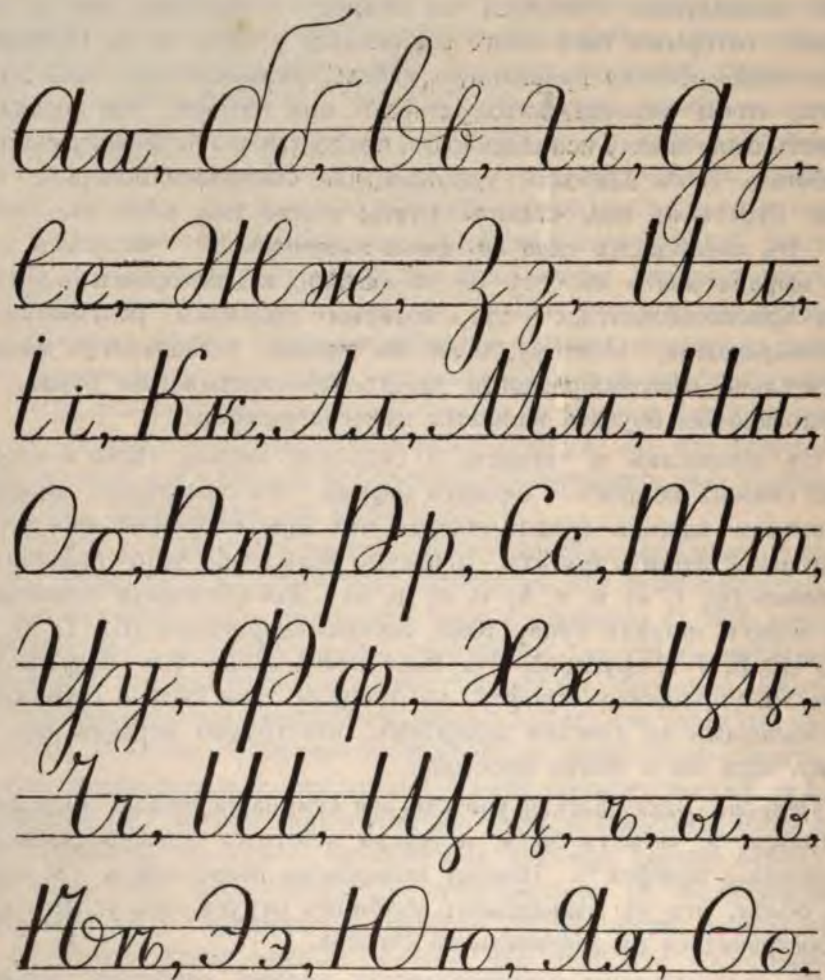 Аа, Бб, Вв, Гг, Дд,
Ее, Жж, Зз, Ии,
Іі, Кк, Лл, Мм, Нн,
Оо, Пп, Рр, Сс, Тт,
Уу, Фф, Хх, Цц,
Чч, Ш, Щщ, ъ, ы, ь,
Ѣѣ, Ээ, Юю, Яя, Ѳѳ.